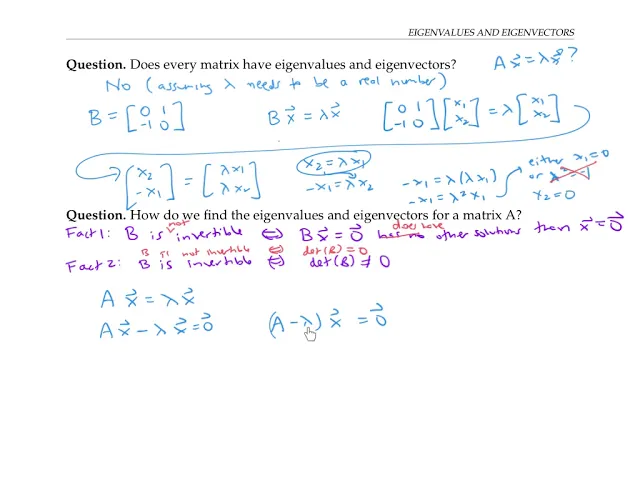 EIGENVALUES AND EIGENVECTORS
Question. Does every matrix have eigenvalues and eigenvectors? A x⃗ = λ x⃗ ?
No (assuming λ needs to be a real number)
B = [0 1; -1 0] B x⃗ = λ x⃗ [0 1; -1 0] [x₁; x₂] = λ [x₁; x₂]
[x₂; -x₁] = [λx₁; λx₂] x₂ = λx₁ -x₁ = λx₂ -x₁ = λ(λx₁) -x₁ = λ²x₁ either x₁ = 0 or λ² = -1 x₂ = 0
Question. How do we find the eigenvalues and eigenvectors for a matrix A?
Fact 1: B is not invertible ⇔ B x⃗ = 0⃗ has no does have other solutions than x⃗ = 0⃗
B is not invertible ⇔ det(B) = 0
Fact 2: B is invertible ⇔ det(B) ≠ 0
A x⃗ = λ x⃗
A x⃗ - λ x⃗ = 0⃗ (A - λ) x⃗ = 0⃗